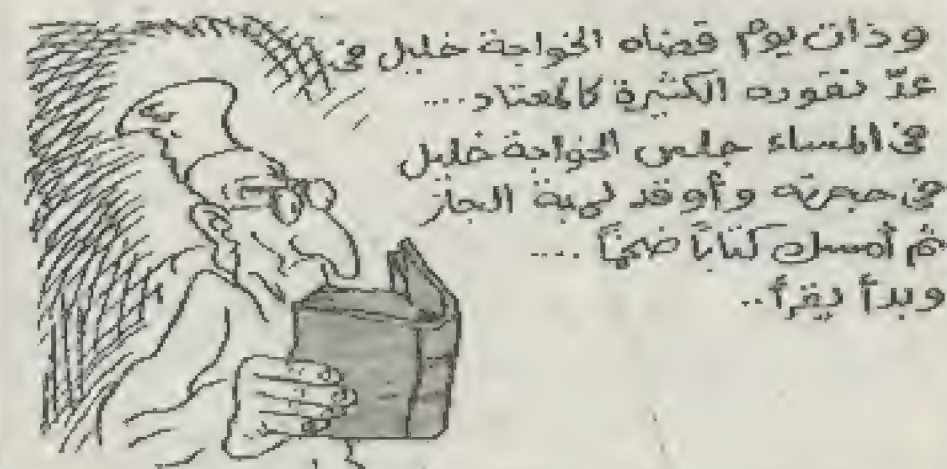 وذات يوم قضاه الخواجة خليل في
عدّ نقوده الكثيرة كالمعتاد ....
في المساء جلس الخواجة خليل
في حجرته وأوقد لمبة الجاز
ثم أمسك كتاباً ضخماً ....
وبدأ يقرأ ..